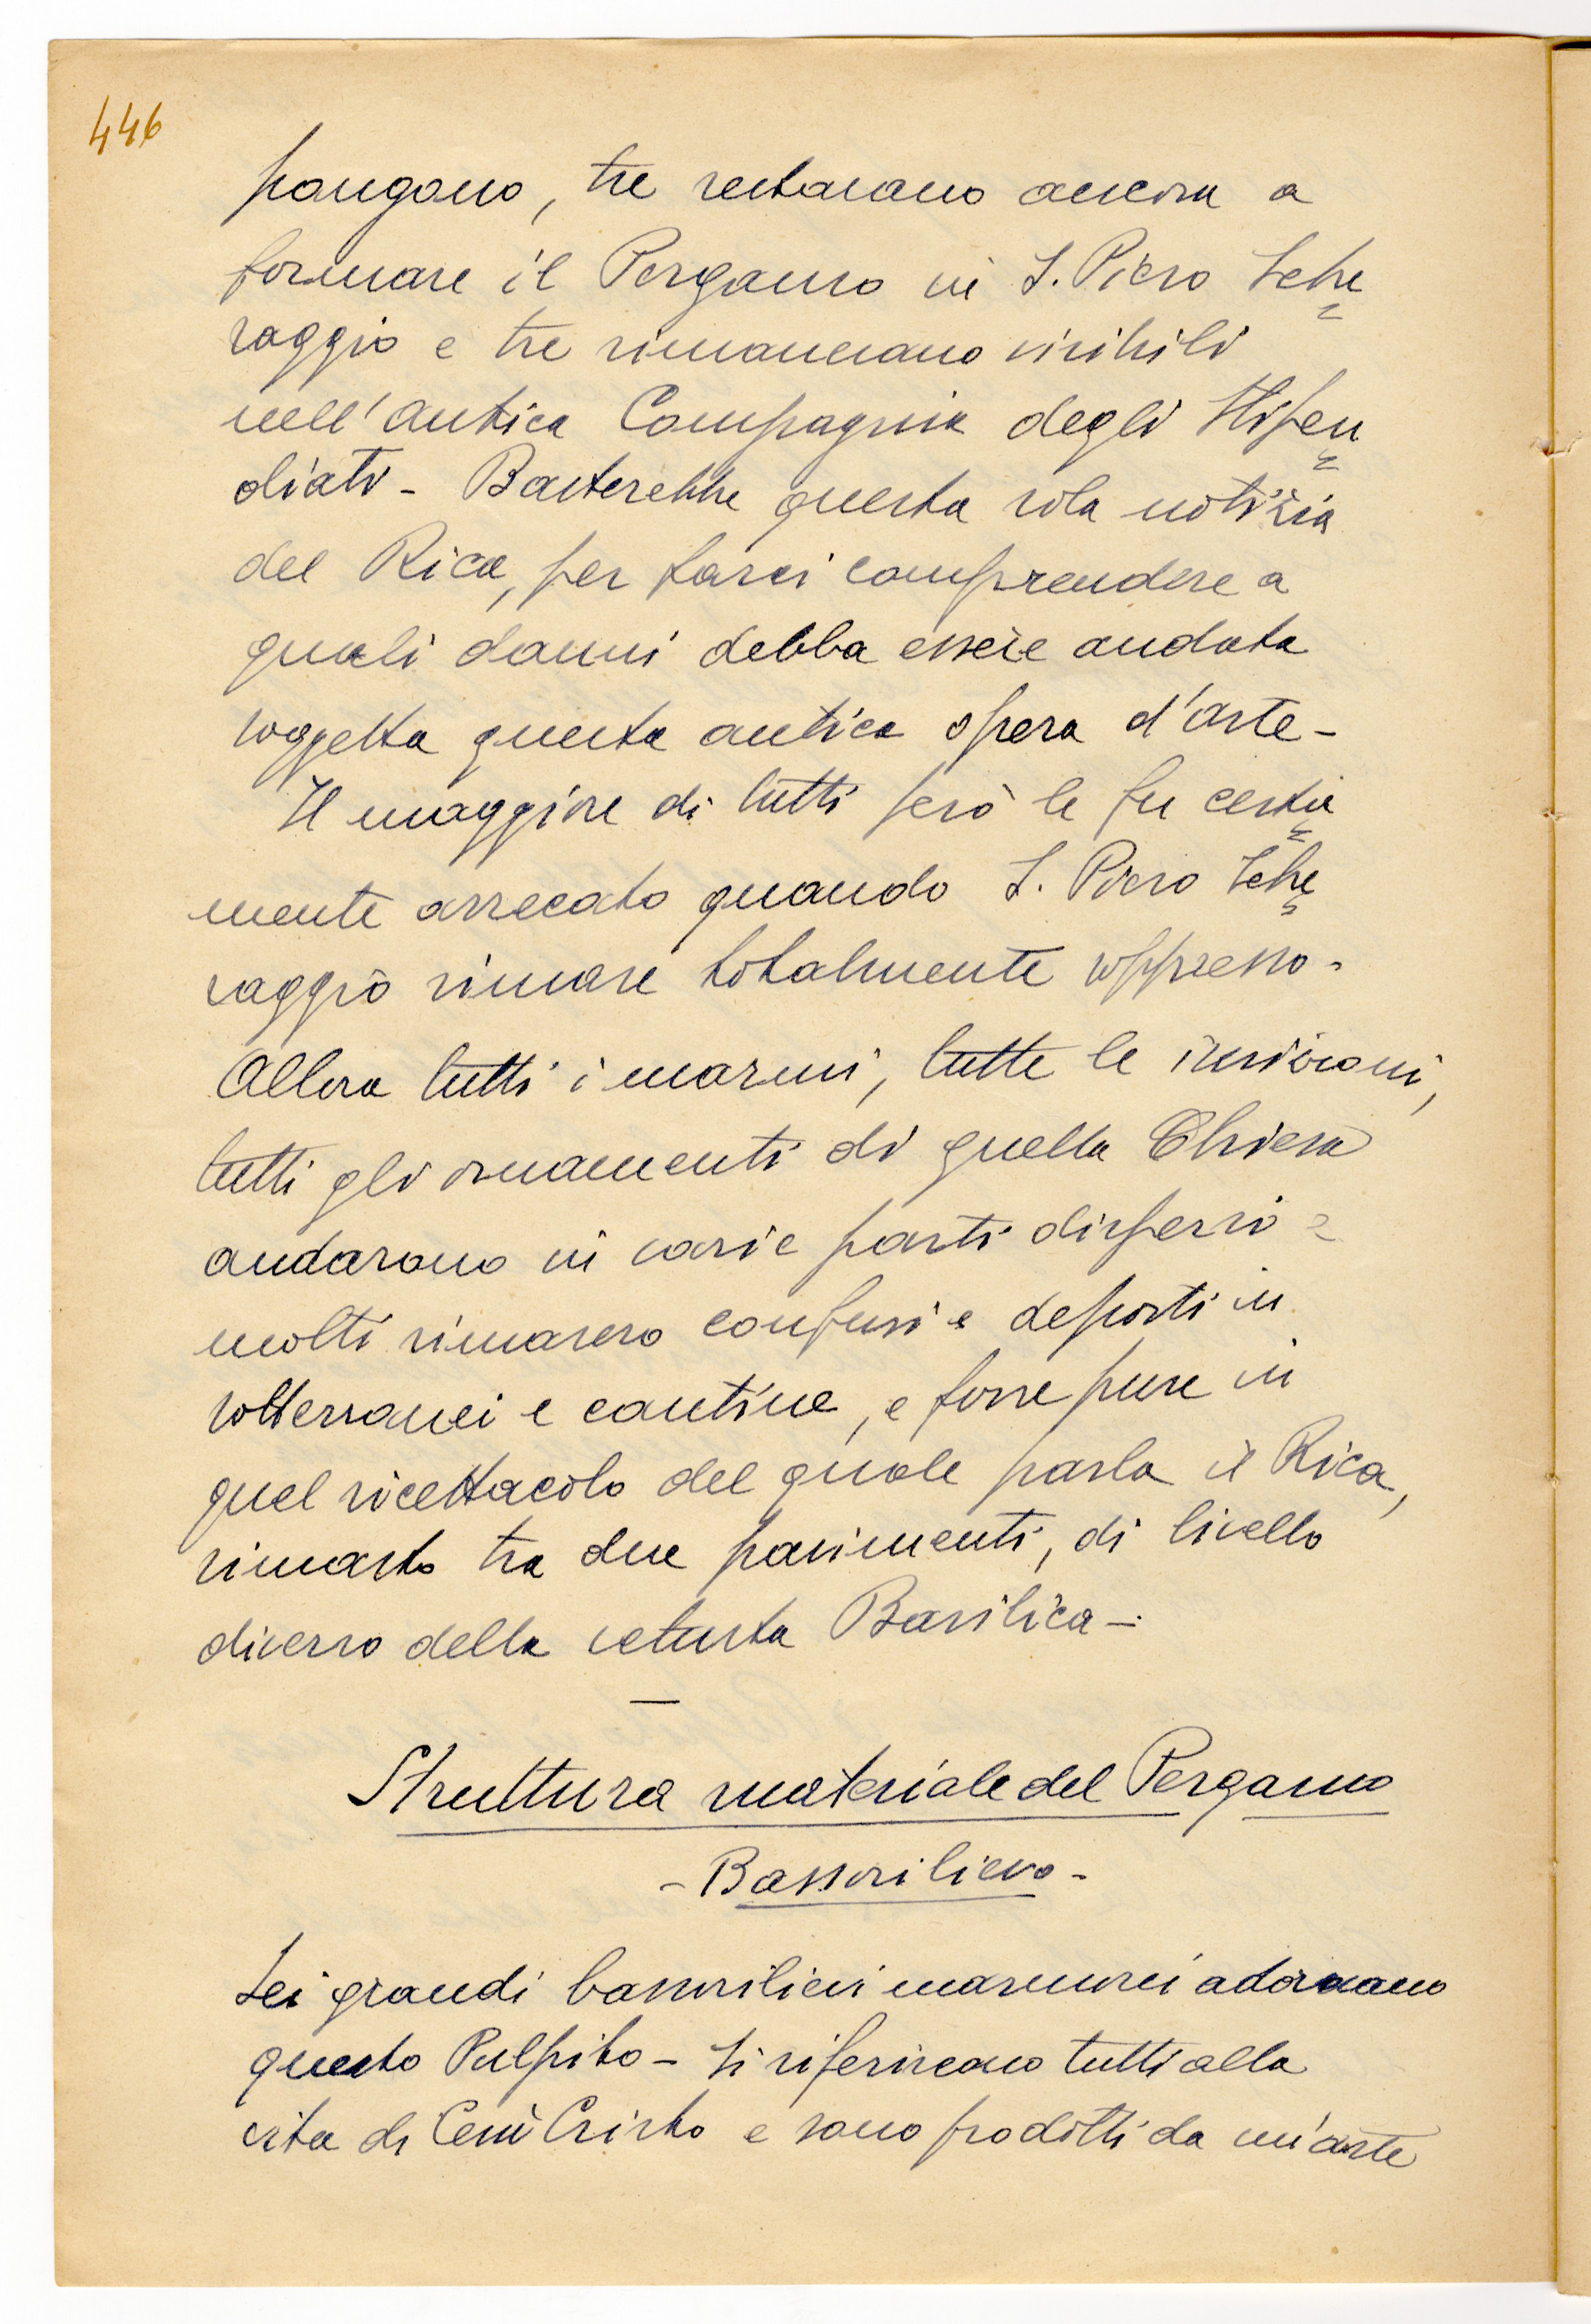 446
pongono, tre restavano ancora a
formare il Pergamo in S. Piero Sche
raggio e tre rimanevano visibili
nell'antica Compagnia degli Stipen
diati - Basterebbe questa sola notizia
del Rica, per farci comprendere a
quali danni debba essere andata
soggetta questa antica opera d'arte -
Il maggiore di tutti però le fu certa
mente arrecato quando S. Piero Sche
raggio rimase totalmente soppresso -
Allora tutti i marmi, tutte le iscrizioni,
tutti gli ornamenti di quella Chiesa
andarono in varie parti dispersi e
molti rimasero confusi e deposti in
sotterranei e cantine, e forse pure in
quel ricettacolo del quale parla il Rica,
rimasto tra due pavimenti, di livello
diverso della vetusta Basilica -
Struttura materiale del Pergamo
- Bassorilievo -
Sei grandi bassorilievi marmorei adornano
questo Pulpito - Si riferiscono tutti alla
vita di Gesù Cristo e sono prodotti da un'arte